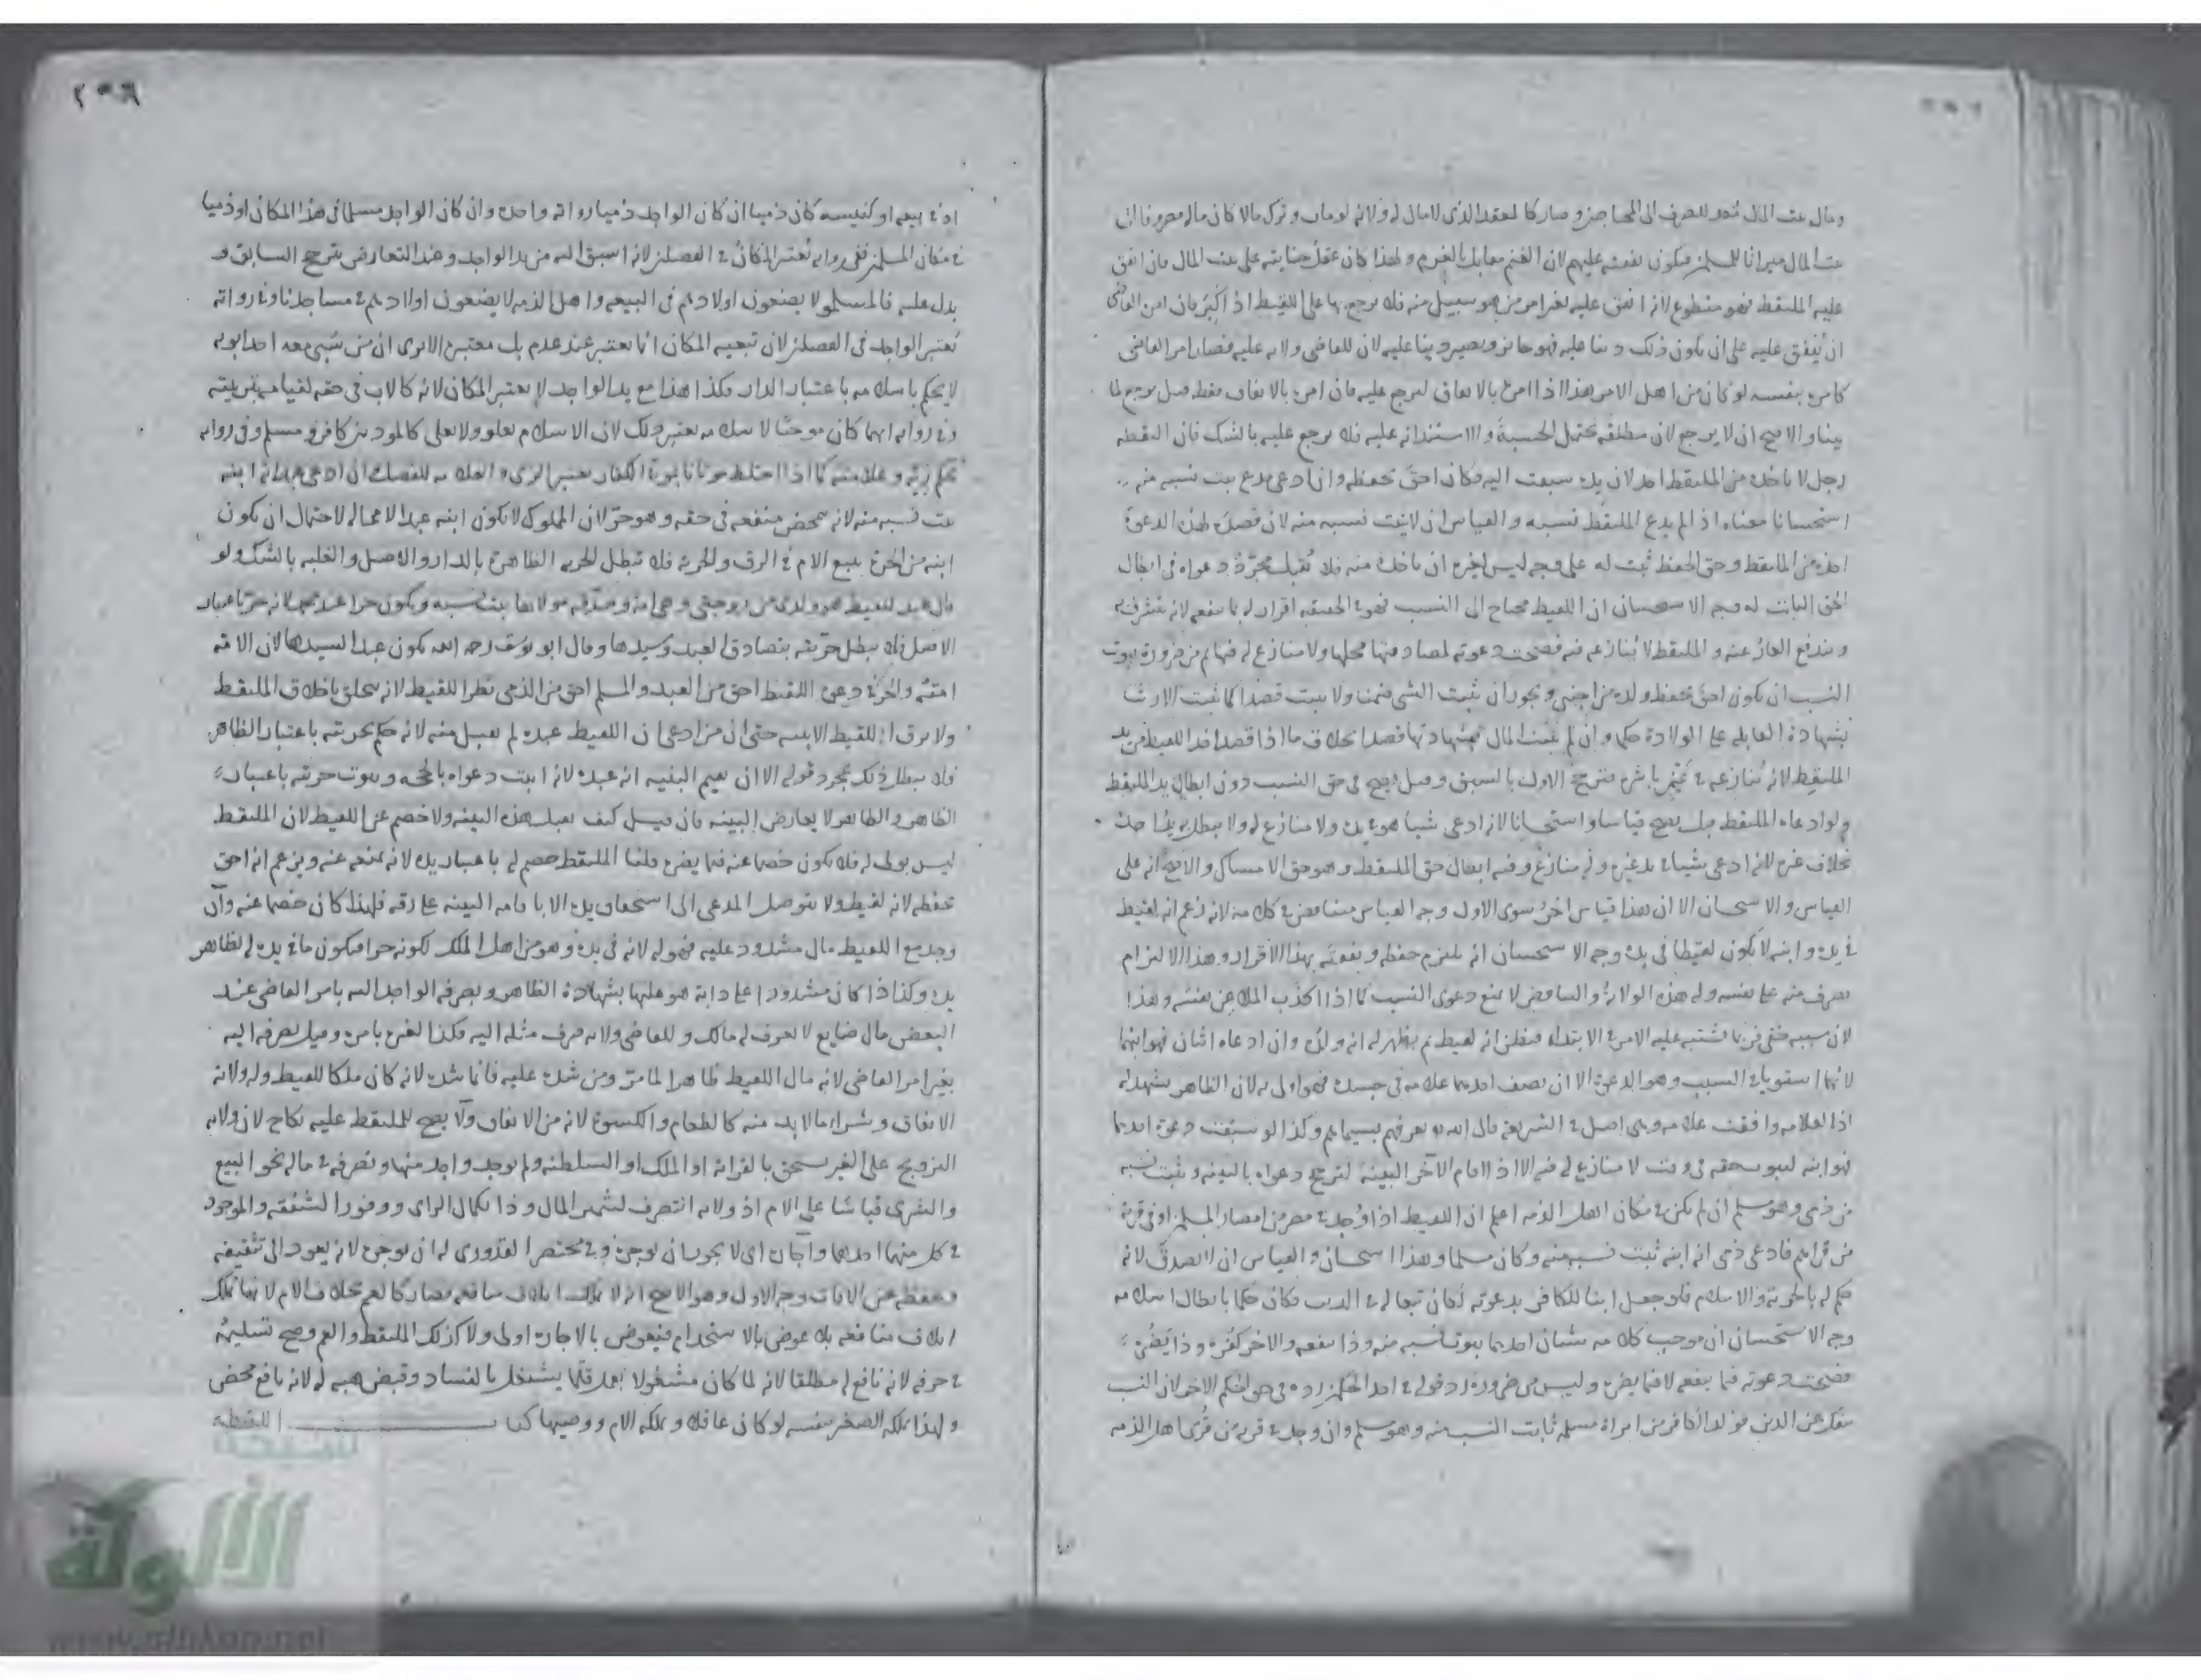 ومال بيت المال معد للصرف الى المحاجز وصار كالمقعد الذى لا مال له ولانه لو مات وترك مالا كان ماله مصروفا الى
بيت المال ميراثا للمسلمين فيكون نفقته عليهم لان الغنم مقابل بالغرم ولهذا كان عقل جنايته على بيت المال فان انفق
عليه الملتقط فهو متطوع لانه انفق عليه بغير امر من هو سبيل منه فلا يرجع بها على اللقيط اذا كبر فان امره القاضى
ان ينفق عليه على ان يكون ذلك دينا عليه فهو جائز ويصير دينا عليه لان للقاضى ولاية عليه فصار امر القاضى
كامره بنفسه لو كان من اهل الامر هذا اذا امره بالانفاق ليرجع عليه فان امره بالانفاق فقط قيل يرجع لما
بينا والاصح ان لا يرجع لان مطلقه يحتمل الحسبة والاستدانة عليه فلا يرجع عليه بالشك فان التقطه
رجل لا ياخذه من الملتقط احد لان يده سبقت اليه وكان احق بحفظه وان ادعى مدع يثبت نسبه منه
استحسانا معناه اذا لم يدع الملتقط نسبه والقياس ان لا يثبت نسبه منه لان فصل لهذه الدعوة
اخذه من الملتقط وحق الحفظ ثبت له على وجه ليس لغيره ان ياخذه منه فلا تقبل مجرد دعواه فى ابطال
الحق الثابت له وجه الاستحسان ان اللقيط محتاج الى النسب فهو فى الحقيقة اقرار له بما ينفعه لانه يتشرف به
ويندفع العار عنه والملتقط لا ينازعه فيه فصحت دعوته لمصادفتها محلها ولا منازع له فيها ثم من ضرورة ثبوت
النسب ان يكون احق بحفظ ولده من اجنبى ويجوز ان يثبت الشى ضمنا ولا يثبت قصدا كما يثبت الارث
بشهادة القابلة على الولادة حكما وان لم يثبت المال بشهادتها قصدا بخلاف ما اذا قصد اخذ اللقيط من يد
الملتقط لانه ينازعه فى باشره فترجح الاول بالسبق وقيل يصح فى حق النسب دون ابطال يد الملتقط
ولو ادعاه الملتقط قيل يصح قياسا واستحسانا لانه ادعى شيئا هو فى يده ولا منازع له ولا يبطل به يد احد
بخلاف غيره لانه ادعى شيئا فى يد غيره وله منازع وفيه ابطال حق الملتقط وهو حق الامساك والاصح انه على
القياس والاستحسان الا ان هذا قياس اخر سوى الاول وجه القياس متناقض كلامه لانه زعم انه لقيط
فى يده وابنه لا يكون لقيطا فى يده وجه الاستحسان انه يلتزم حفظه ونفقته بهذا الاقرار وهذا الالتزام
تصرف منه على نفسه وله هذه الولاية والتناقض لا يمنع دعوى النسب كما اذا اكذب الملاعن نفسه وهذا
لان سببه خفى فربما يشتبه عليه الامر فى الابتداء فيظن انه لقيط ثم يظهر له انه ولده وان ادعاه اثنان فهو ابنهما
لانهما استويا فى السبب وهو الدعوة الا ان يصف احدهما علامة فى جسده فهو اولى به لان الظاهر يشهد له
اذا العلامة وافقت علامه وهى اصل فى الشريعة قال الله تعرفهم بسيماهم وكذا لو سبقت دعوة احدهما
فهو ابنه لثبوت حقه فى وقت لا منازع له فيه الا اذا اقام الاخر البينة لترجح دعواه بالبينة ويثبت نسبه
من ذمى وهو مسلم ان لم يكن فى مكان اهل الذمة اعلم ان اللقيط اذا وجد فى مصر من امصار المسلمين او فى قرية
من قراهم فادعى ذمى انه ابنه ثبت نسبه منه وكان مسلما وهذا استحسان والقياس ان لا يصدق لانه
حكم له بالحرية والاسلام فلو جعل ابنا للكافر بدعوته لكان تبعا له فى الدين فكان حكما بابطال اسلامه
وجه الاستحسان ان موجب كلامه شيئان احدهما ثبوت نسبه منه وذا ينفعه والاخر كفره وذا يضره
فصحت دعوته فيما ينفعه لا فيما يضره وليس من ضرورة رد قوله فى احد الحكمين رده فى حق الحكم الاخر لان النسب
ينفك عن الدين فولد الكافر من امراة مسلمة ثابت النسب منه وهو مسلم وان وجد فى قرية من قرى اهل الذمة
٢٥٦
او فى بيعة او كنيسة كان ذميا ان كان الواجد ذميا رواية واحدة وان كان الواجد مسلما فى هذا المكان او ذميا
فى مكان المسلمين ففى رواية يعتبر المكان فى الفصلين لانه اسبق اليه من يد الواجد وعند التعارض يترجح السابق و
يدل عليه فالمسلمون لا يضعون اولادهم فى البيعة واهل الذمة لا يضعون اولادهم فى مساجدنا وفى رواية
يعتبر الواجد فى الفصلين لان تبعية المكان انما يعتبر عند عدم يد معتبرة الا يرى ان من سبى معه احد ابويه
لا يحكم باسلامه باعتبار الدار فكذا هذا مع يد الواجد لا يعتبر المكان لانه كالاب فى حقه لقيامه بتربيته
وفى رواية ايهما كان موجبا لاسلامه يعتبر ذلك لان الاسلام يعلو ولا يعلى كالمولود بين كافر ومسلم وفى رواية
يحكم زيه وعلامته كما اذا اختلط موتانا بموتى الكفار يعتبر الزى والعلامة للفصل وان ادعى عبد انه ابنه
يثبت نسبه منه لانه تمحض منفعة فى حقه وهو حر لان المملوك لا يكون ابنه عبدا لا محالة لاحتمال ان يكون
ابنه من الحرة يتبع الام فى الرق والحرية فلا تبطل الحرية الظاهرة بالدار والاصل والغلبة بالشك ولو
قال عبد للقيط هو ولدى من زوجتى وهى امة وصدقه مولاها يثبت نسبه ويكون حرا عند محمد لانه حر باعتبار
الاصل فلا يبطل حريته بتصادق العبد وسيدها وقال ابو يوسف رحمه الله يكون عبدا لسيدها لان الامة
امته والحر فى دعوى اللقيط احق من العبد والمسلم احق من الذمى نظرا للقيط لانه يتخلق باخلاق الملتقط
ولا يرق اللقيط الا ببينة حتى ان من ادعى ان اللقيط عبده لم يقبل منه لانه حكم بحريته باعتبار الظاهر
فلا يبطل ذلك بمجرد قوله الا ان يقيم البينة انه عبده لانه اثبت دعواه بالحجة وثبوت حريته باعتبار
الظاهر والظاهر لا يعارض البينة فان قيل كيف تقبل هذه البينة ولا خصم عن اللقيط لان الملتقط
ليس بولى له فلا يكون خصما عنه فيما يضره قلنا الملتقط خصم له باعتبار يده لانه يمنعه عنه ويزعم انه احق
بحفظه لانه لقيط ولا يتوصل المدعى الى استحقاق يده الا باقامة البينة على رقه فلهذا كان خصما عنه وان
وجد مع اللقيط مال مشدود عليه فهو له لانه فى يده وهو من اهل الملك لكونه حرا فيكون ما فى يده له لظاهر
يده وكذا اذا كان مشدودا على دابة هو عليها بشهادة الظاهر ويصرفه الواجد اليه بامر القاضى عند
البعض مال ضايع لا يعرف له مالك وللقاضى ولاية صرف مثله اليه وكذا لغيره بامره وقيل يصرفه اليه
بغير امر القاضى لانه مال اللقيط ظاهرا لما مر ومن شده عليه فانما شده لانه كان ملكا للقيط وله ولاية
الانفاق وشراء ما لا بد منه كالطعام والكسوة لانه من الانفاق ولا يصح للملتقط عليه نكاح لان ولاية
التزويج على الغير يستحق بالقرابة او الملك او السلطنة ولم يوجد واحد منها وتصرفه فى ماله نحو البيع
والشرى قياسا على الام اذ ولاية التصرف لتثمير المال وذا بكمال الراى ووفور الشفقة والموجود
فى كل منهما احدهما واجارته اى لا يجوز ان يوجره وفى مختصر القدورى له ان يوجره لانه يعود الى تثقيفه
وحفظه عن الافات وجه الاول وهو الاصح انه لا يملك اتلاف منافعه فصار كالعم بخلاف الام لانها تملك
اتلاف منافعه بلا عوض بالاستخدام فبعوض بالاجارة اولى ولا كذلك الملتقط والعم وصح تسليمه
فى حرفة لانه نافع له مطلقا لانه لما كان مشغولا بعمل قلما يشتغل بالفساد وقبض هبة له لانه نافع محض
ولهذا يملكه الصغير بنفسه لو كان عاقلا ويملكه الام ووصيها كتاب اللقطة
شبكة
الألوكة
www.alukah.net